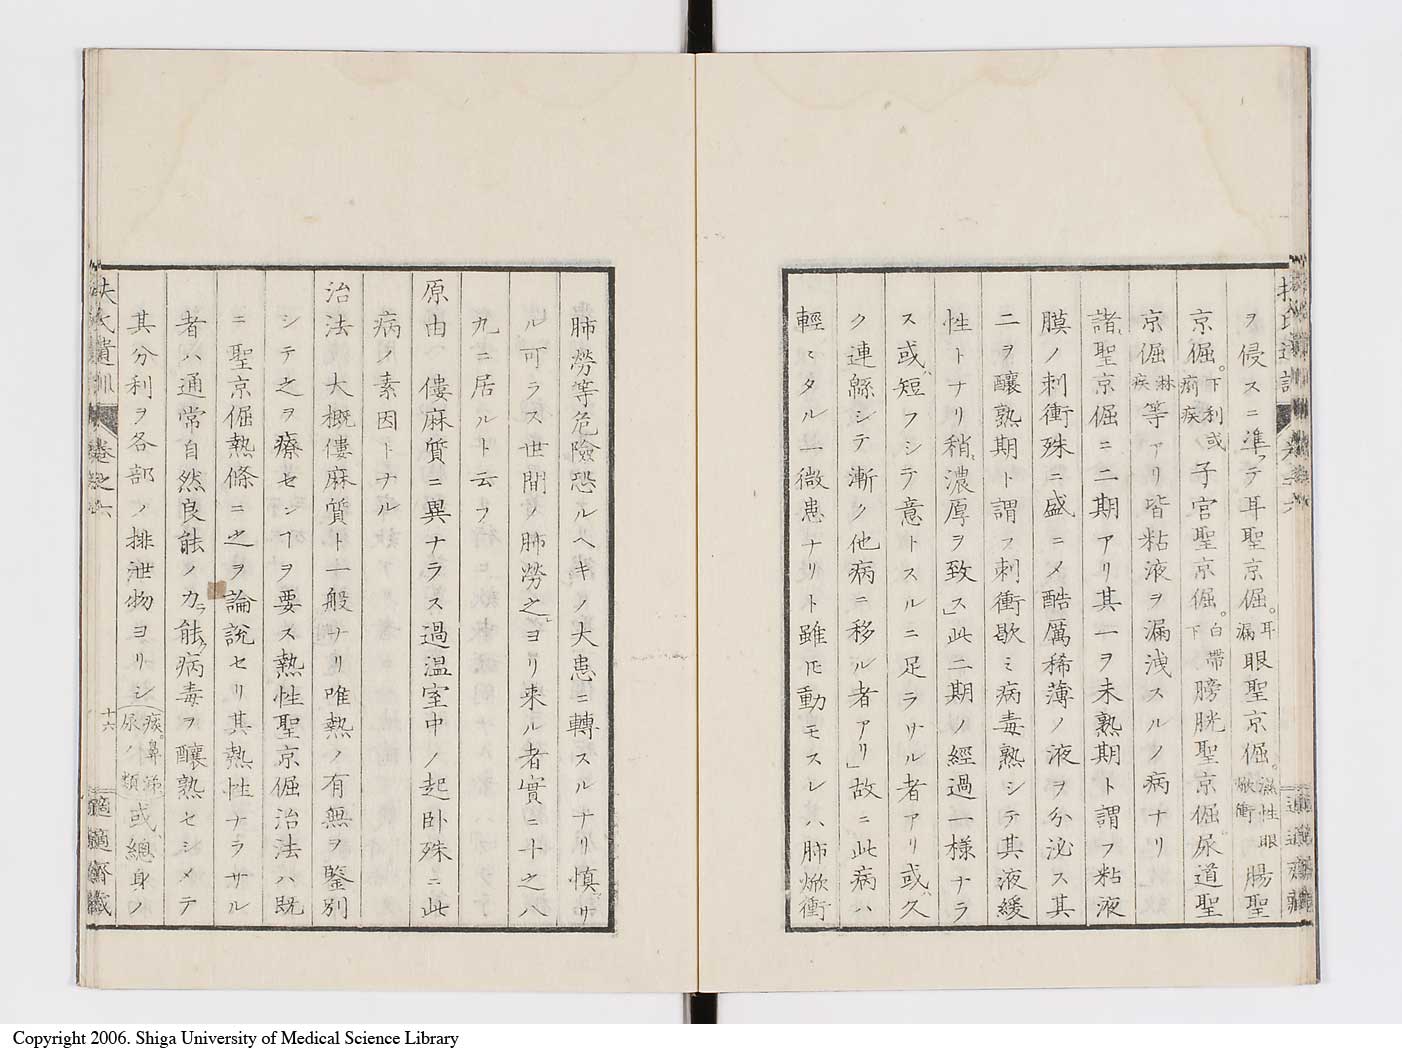 ヲ侵スニ準ツテ耳聖京倔。耳漏眼聖京倔。滋性眼焮衝腸聖
京倔。下利或痢疾子宮聖京倔。白帯下膀胱聖京倔尿道聖
京倔淋疾等アリ皆粘液ヲ漏洩スルノ病ナリ
諸聖京倔ニ二期アリ其一ヲ未熟期ト謂フ粘液
膜ノ刺衝殊ニ盛ニメ酷厲稀薄ノ液ヲ分泌ス其
二ヲ釀熟期ト謂フ刺衝歇ミ病毒熟シテ其液緩
性トナリ稍濃厚ヲ致ス」此二期ノ經過一様ナラ
ス或ハ短フシテ意トスルニ足ラサル者アリ或ハ久
ク連緜シテ漸ク他病ニ移ル者アリ」故ニ此病ハ
輕ミタル一微患ナリト雖𪜈動モスレハ肺焮衝
肺勞等危險恐ルヘキノ大患ニ轉スルナリ慎マサ
ル可ラス世間ノ肺勞之ニヨリ来ル者實ニ十之八
九ニ居ルト云フ
原由 僂麻質ニ異ナラス過温室中ノ起卧殊ニ此
病ノ素因トナル
治法 大概僂麻質ト一般ナリ唯熱ノ有無ヲ鑒別
シテ之ヲ療センヿヲ要ス熱性聖京倔治法ハ既
ニ聖京倔熱條ニ之ヲ論説セリ其熱性ナラサル
者ハ通常自然良能ノ力ラ能ク病毒ヲ釀熟セシメテ
其分利ヲ各部ノ排泄物ヨリシ(痰。鼻涕。尿ノ類)或ハ總身ノ
扶氏遺訓 卷之六
十六
適適齋藏
Copyright 2006. Shiga University of Medical Science Library